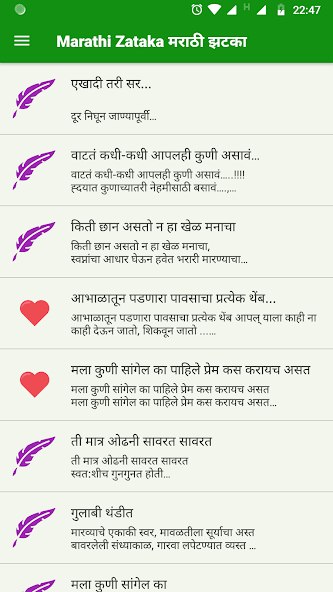 22:47
Marathi Zataka मराठी झटका
एखादी तरी सर...
दूर निघून जाण्यापूर्वी...
वाटतं कधी-कधी आपलही कुणी असावं...
वाटतं कधी-कधी आपलही कुणी असावं.....!!!!
ह्दयात कुणाच्यातरी नेहमीसाठी बसावं....,...
किती छान असतो न हा खेळ मनाचा
किती छान असतो न हा खेळ मनाचा,
स्वप्नांचा आधार घेऊन हवेत भरारी मारण्याचा...
आभाळातून पडणारा पावसाचा प्रत्येक थेंब...
आभाळातून पडणारा पावसाचा प्रत्येक थेंब आपल् याला काही ना
काही देऊन जातो, शिकवून जातो ......
मला कुणी सांगेल का पाहिले प्रेम कस करायच असत
मला कुणी सांगेल का पाहिले प्रेम कस करायच असत
मला कुणी सांगेल का पाहिले प्रेम कस करायच असत...
ती मात्र ओढनी सावरत सावरत
ती मात्र ओढनी सावरत सावरत
स्वत:शीच गुनगुनत होती...
गुलाबी थंडीत
मारव्याचे एकाकी स्वर, मावळतीला सूर्याचा अस्त
बावरलेली संध्याकाळ, गारवा लपेटण्यात व्यस्त ...
मला कुणी सांगेल का